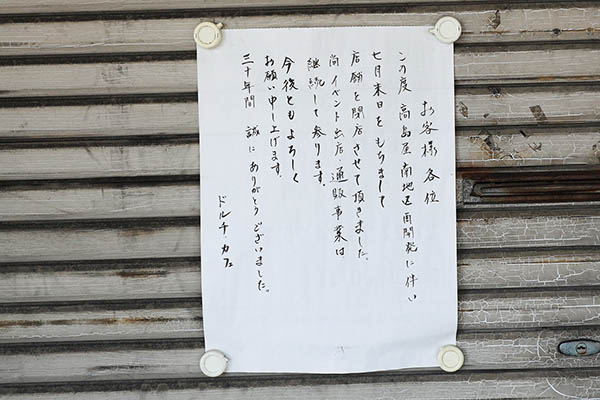 お客様各位
この度 高島屋南地区再開発に伴い
七月末日をもちまして
店舗を閉店させて頂きました。
尚イベント出店・通販事業は
継続して参ります。
今後ともよろしく
お願い申し上げます。
三十年間 誠にありがとうございました。
ドルチカフェ